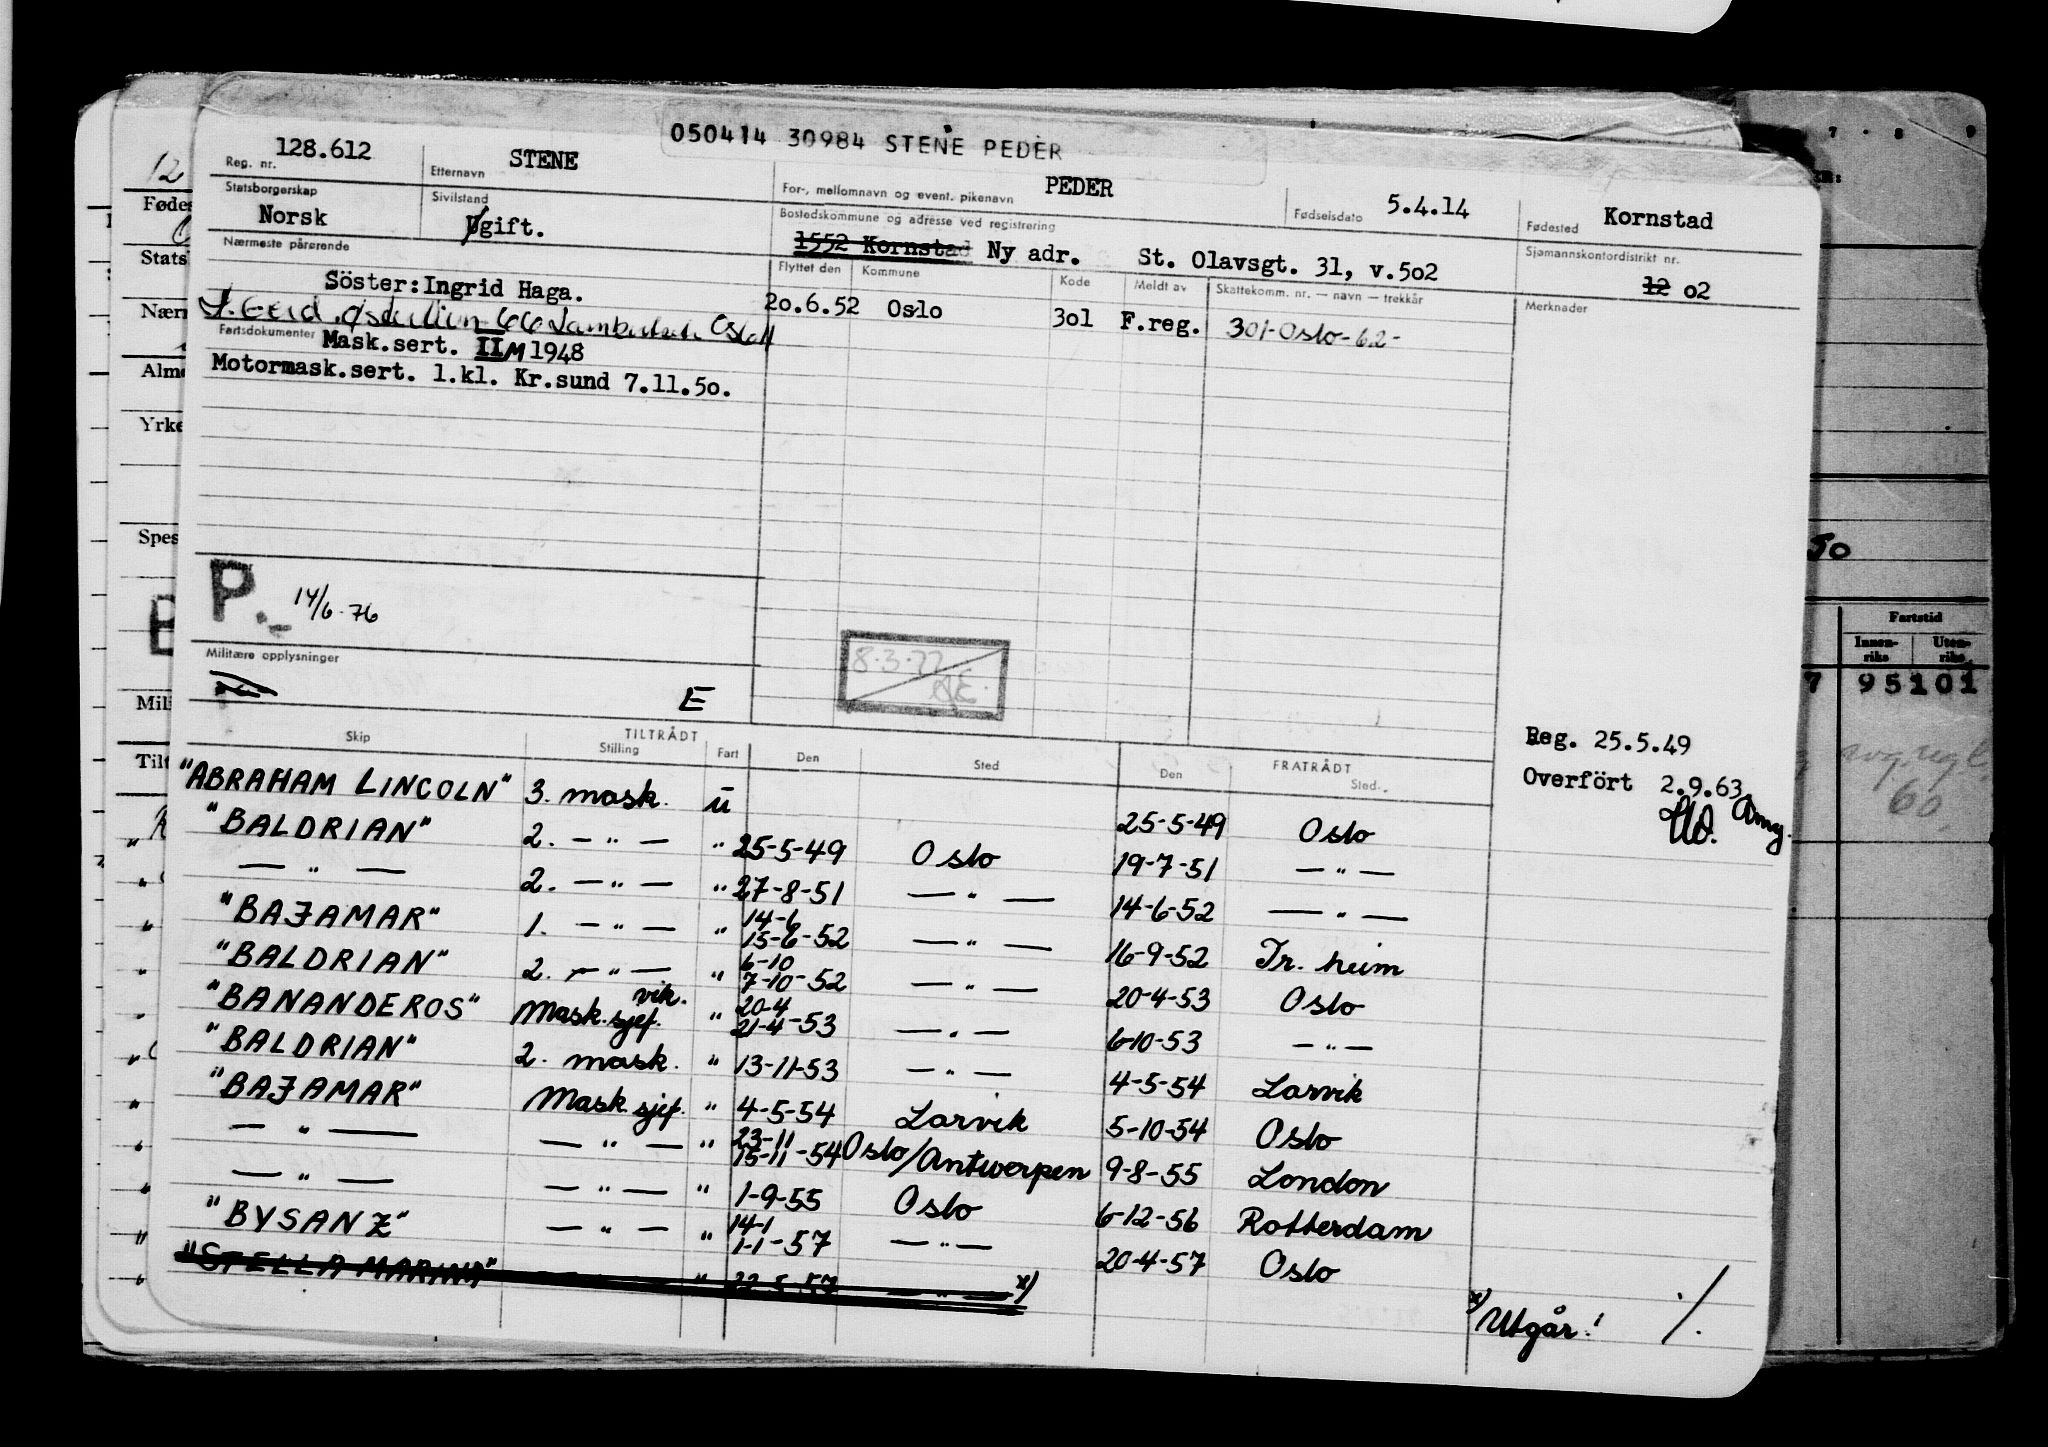 050414 30984 STENE PEDER
128.612 STENE PEDER 5.4.14 Kornstad
Reg. nr. Etternavn For-, mellomnavn og event. pikenavn Fødselsdato Fødested
Statsborgerskap Sivilstand Bostedskommune og adresse ved registrering Sjømannskontordistrikt nr.
Norsk Ugift. 1552 Kornstad Ny adr. St. Olavsgt. 31, v.502 12 02
Nærmeste pårørende Flyttet den Kommune Kode Meldt av Skattekomm. nr. — navn — trekkår Merknader
Söster: Ingrid Haga. 20.6.52 Oslo 301 F.reg. 301-Oslo-62-
66 Oslo 11
Fartsdokumenter Mask.sert. II M 1948
Motormask.sert. 1.kl. Kr.sund 7.11.50.
P. 14/6-76
Militære opplysninger
8-3-77
E
Reg. 25.5.49
Overført 2.9.63
TILTRÅDT FRATRÅDT
Skip Stilling Fart Den Sted Den Sted
"ABRAHAM LINCOLN" 3. mask. u 25-5-49 Oslo
"BALDRIAN" 2. — " — " 25-5-49 Oslo 19-7-51 — " —
— " — 2. — " — " 27-8-51 — " — 14-6-52 — " —
"BAJAMAR" 1. — " — " 14-6 15-6-52 — " — 16-9-52 Tr. heim
"BALDRIAN" 2. — " — " 6-10 7-10-52 — " — 20-4-53 Oslo
"BANANDEROS" Mask.sjef. vik. " 20-4 21-4-53 — " — 6-10-53 — " —
"BALDRIAN" 2. mask. " 13-11-53 — " — 4-5-54 Larvik
"BAJAMAR" Mask.sjef. " 4-5-54 Larvik 5-10-54 Oslo
— " — — " — " 23-11 15-11-54 Oslo/Antwerpen 9-8-55 London
— " — — " — " 1-9-55 Oslo 6-12-56 Rotterdam
"BYSANZ" — " — " 14-1 1-1-57 — " — 20-4-57 Oslo
"STELLA MARINA" " — " — x)
x) Utgår! ./.
12
Fødes
Stats
Nærn
Alme
Yrke
Spes
Mili
Tilt
7 8 9
50
Fartstid
Innen-riks Uten-riks
7 95101
60